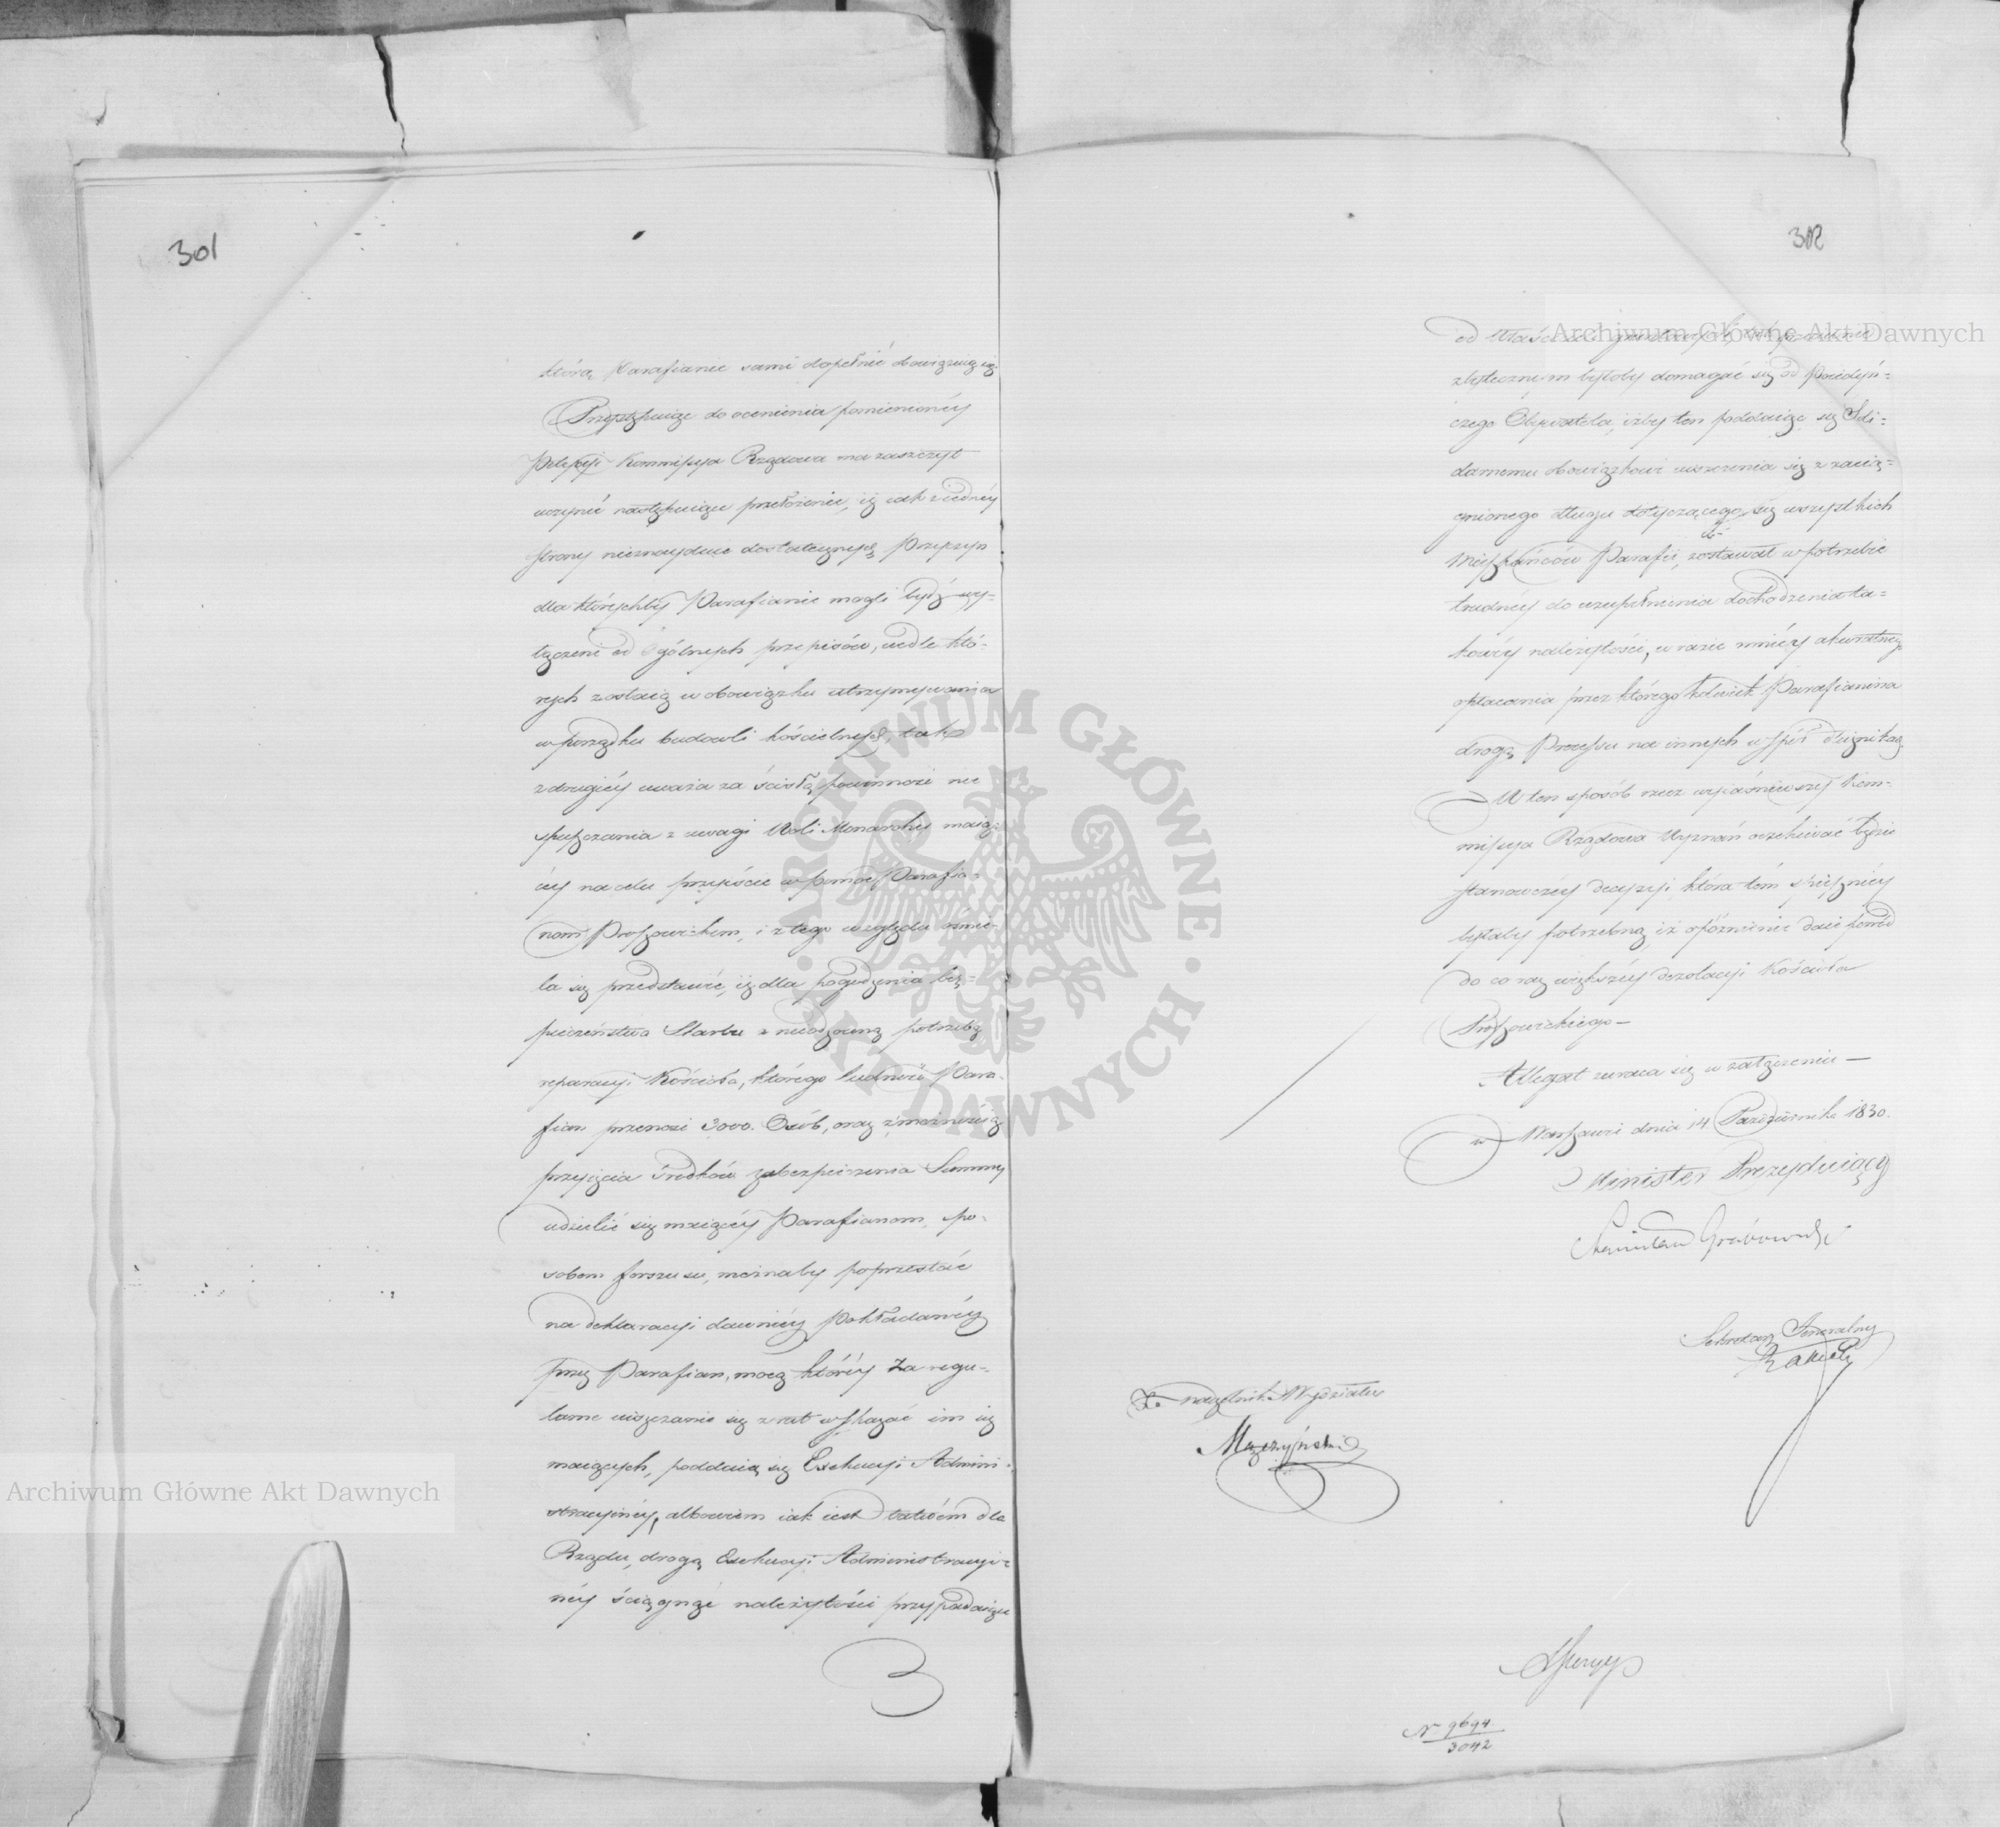 301
którą Parafianie sami dopełnić obowiązują się.
Przystępując do ocenienia pomienionéy
Kommissya Rządowa ma zaszczyt
uczynić następujące przełożenie, iż jak z jednéy
strony nieznayduie dostatecznych Przyczyn
dla którychby Parafianie mogli bydź wy-
łączeni od ogólnych przepisów, wedle któ-
rych zostaią w obowiązku utrzymywania
w porządku budowli kościelnych, tak
z drugiéy uważa za ścisłą powinność nie
spuszczania z uwagi Woli Monarchy maią-
céy na celu przyiście w pomoc Parafia-
nom Proszowickim, i z tego względu ośmie-
la się przedstawić, iż dla pogodzenia bez-
pieczeństwa Skarbu z nieodzowną potrzebą
reparacyi Kościoła, którego ludność Para-
fian przenosi 3000. Osób, oraz z możnością
przyięcia środków zabezpieczenia Summy
udzielić się maiącéy Parafianom, spo-
sobem forszusu, możnaby poprzestać
na deklaracyi dawniéy Pokładanéy
przez Parafian, mocą któréy za regu-
larne uiszczanie się z rat wskazać im się
maiących, poddaią się Exekucyi Admini-
stracyinéy, albowiem jak iest łatwém dla
Rządu, drogą Exekucyi Administracyi-
néy ściągnąć należytości przypadaiące
302
od Właścicieli
zbytecznem byłoby domagać się od Poiedyń-
czego Obywatela, iżby ten poddaiąc się Soli-
darnemu obowiązkowi uiszczenia się z zacią-
gnionego długu dotyczącego się wszystkich
Mieszkańców Parafii, zostawał w potrzebie
trudnéy do uzupełnienia dochodzenia ta-
kowéy należytości, w razie mniéy akuratnego
opłacania przez któregokolwiek Parafianina
drogą Processu na innych współ dłużnikach
W ten sposób rzecz wyiaśniwszy Kom-
missya Rządowa Wyznań oczekiwać będzie
stanowczéy decyzyi, która tém śpieszniéy
byłaby potrzebną, iż opóźnienie daie powód
do coraz większéy dezolacyi Kościoła
Proszowickiego —
Allegat zwraca się w załączeniu —
w Warszawie dnia 14 Października 1830.
Minister Prezyduiący
Stanisław Grabowski
Sekretarz Generalny
Za Naczelnik Wydziału
Męczyński
N 9694
3042
Archiwum Główne Akt Dawnych
Archiwum Główne Akt Dawnych
ARCHIWUM GŁÓWNE
AKT DAWNYCH